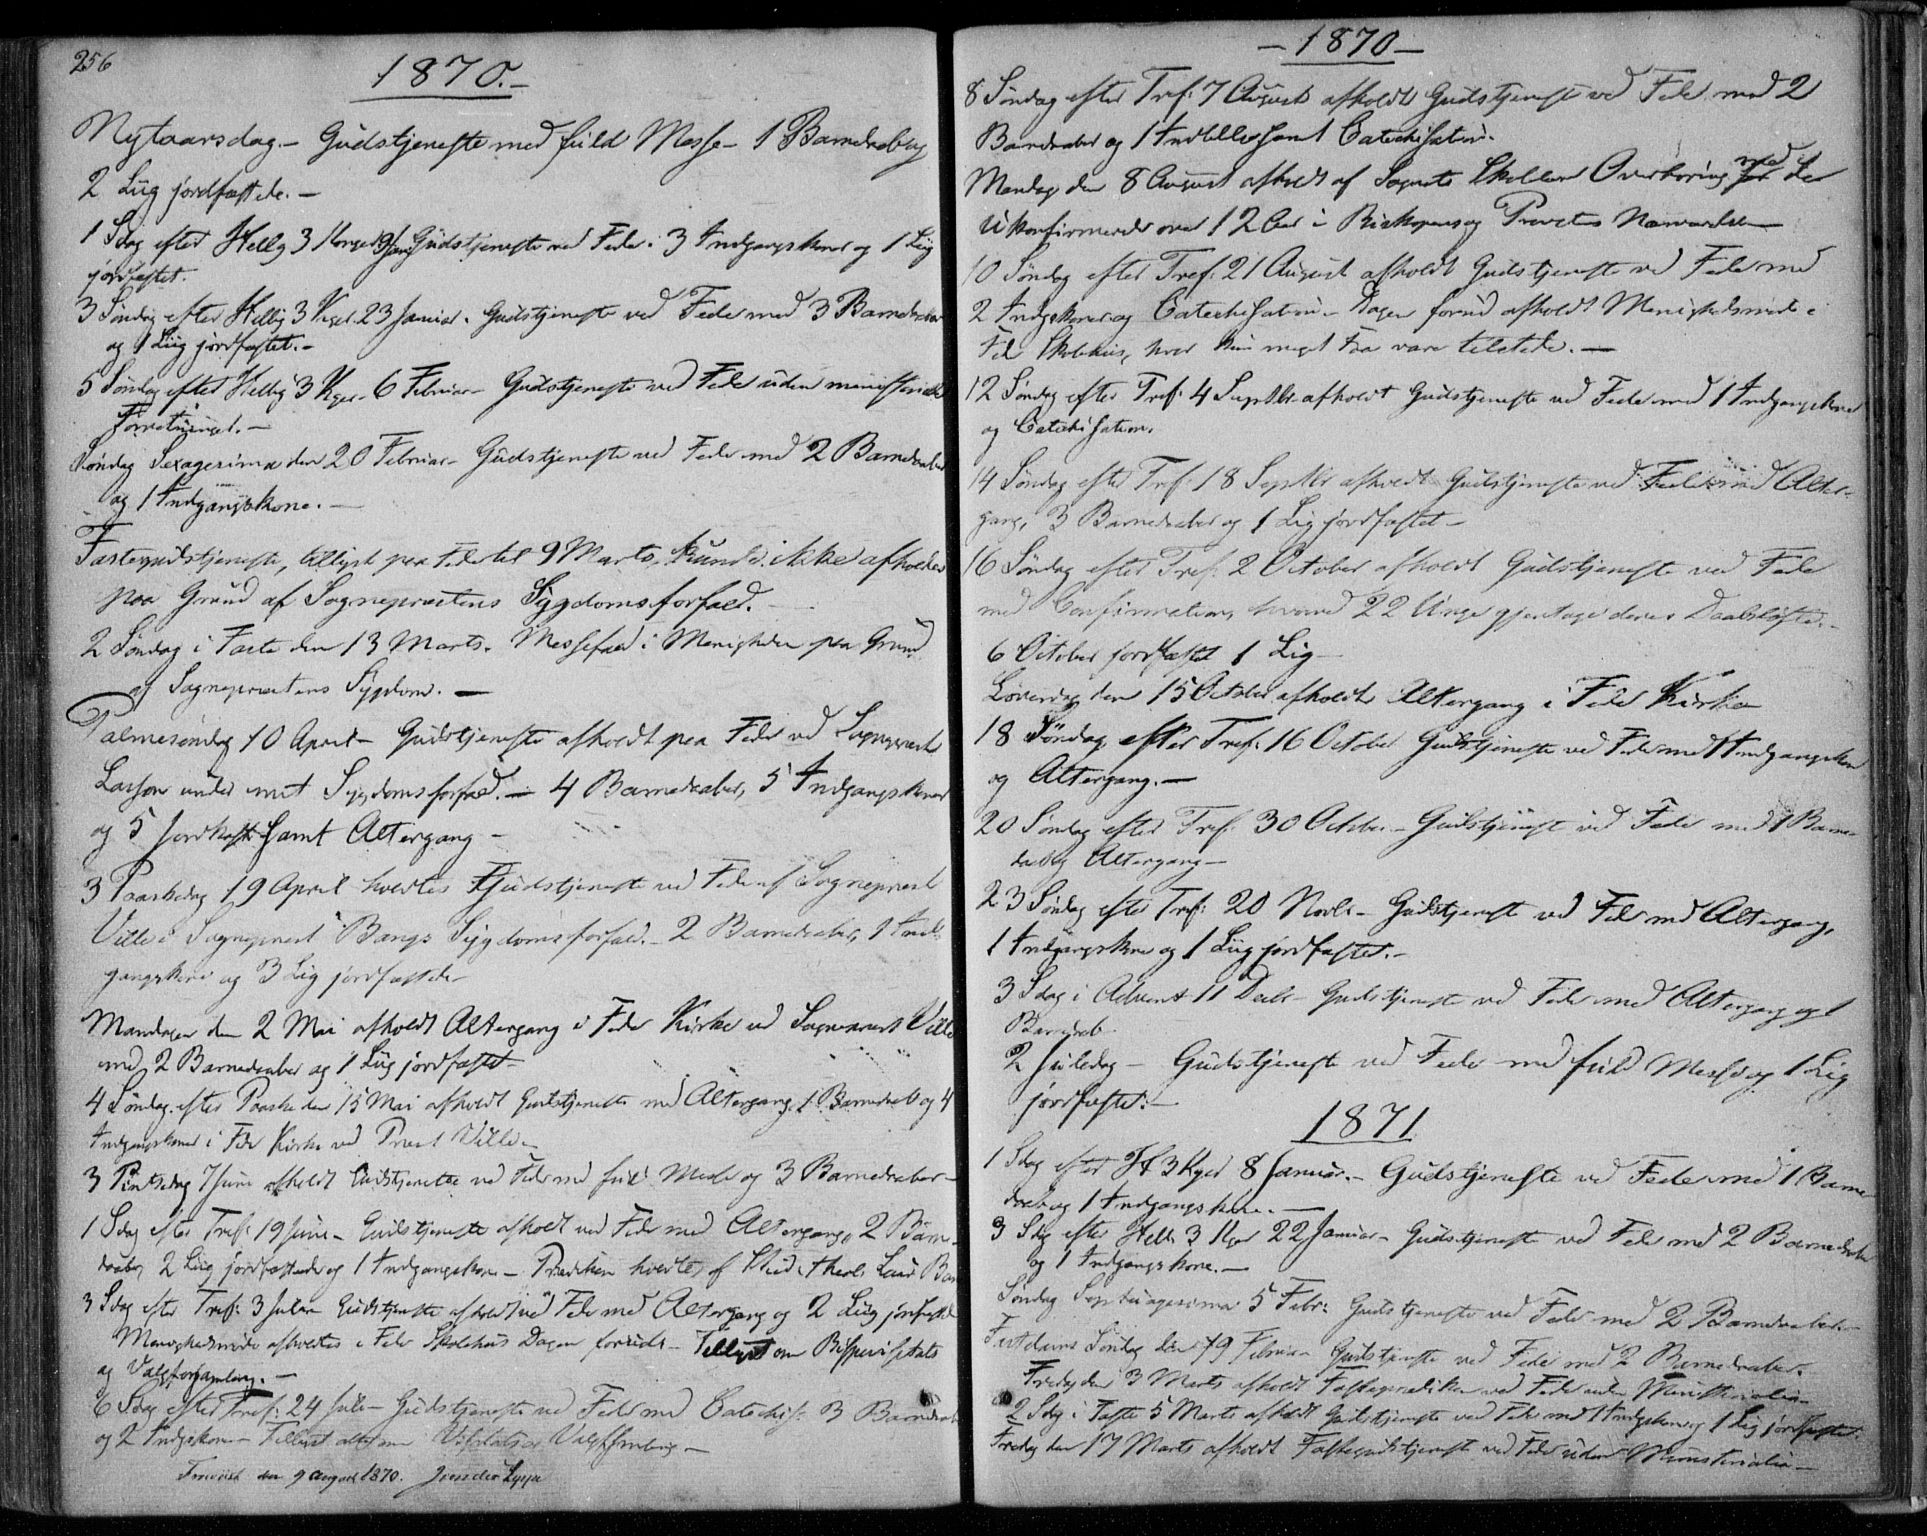 256
1870.-
Nytaarsdag - Gudstjeneste med fuld Messe - 1 Barnedaab og
2 Liig jordfæstede. -
1 Sdag efter Hellig 3 Konger 9 Jan. Gudstjeneste ved Fede. 3 Indgangskoner og 1 Liig
jordfæstet.
3 Søndag efter Hellig 3 Kger. 23 Januar. Gudstjeneste ved Fede med 3 Barnedaaber
og 1 Liig jordfæstet. -
5 Søndag efter Hellig 3 Kger. 6 Februar - Gudstjeneste ved Fede uden ministerielle
Forretninger. -
Søndag Sexagesima den 20 Februar - Gudstjeneste ved Fede med 2 Barnedaaber
og 1 Indgangskone. -
Fastegudstjeneste, tillyst paa Fede til 9 Marts, kunde ikke afholdes
paa Grund af Sognepræstens Sygdomsforfald.
2 Søndag i Faste den 13 Marts. Messefald i Menigheden paa Grund
af Sognepræstens Sygdom. -
Palmesøndag 10 April - Gudstjeneste afholdt paa Fede ved Sognepræst
Lassen under mit Sygdomsforfald. - 4 Barnedaaber, 5 Indgangskoner
og 5 Jordfæst. samt Altergang -
3 Paaskedag 19 April holdtes Gudstjeneste ved Fede af Sognepræst
Wille i Sognepræst Bangs Sygdomsforfald. - 2 Barnedaaber, 1 Ind-
gangskone og 3 Lig jordfæstede
Mandagen den 2 Mai afholdt Altergang i Fede Kirke ved Sognepræst Wille
med 2 Barnedaaber og 1 Liig jordfæstet -
4 Søndag efter Paaske den 15 Mai afholdt Gudstjeneste med Altergang, 1 Barnedaab og 4
Indgangskoner i Fede Kirke ved Præst Wille. -
3 Pintsedag 7 Juni afholdt Gudstjeneste ved Fede med fuld Messe og 3 Barnedaaber -
1 Sdag efter Tref: 19 Juni - Gudstjeneste afholdt ved Fede med Altergang, 2 Barne-
daaber, 2 Liig jordfæstede og 1 Indgangskone - Prædiken holdtes af Stud. theol.
3 Sdag efter Tref: 3 Juli Gudstjeneste afholdt ved Fede med Altergang og 2 Liig jordfæstede
Menighedsmøde afholdtes i Fede Skolehus Dagen forud - Tillyst om Bispevisitats
og Valgforsamling. -
6 Sdag efter Tref: 24 Juli - Gudstjeneste ved Fede med Catechis: 3 Barnedaab
og 2 Indgskoner - Tillyst om Visitats og Valgforsamling -
den 9 August 1870.
- 1870 -
8 Søndag efter Tref: 7 August afholdt Gudstjeneste ved Fede med 2
Barnedaaber og 1 samt Catechisation.
Mandag den 8 August afholdt af Sognets Skoller Overhøring med de
Ukonfirmerede over 12 Aar i Biskopens og Provstens Nærværelse -
10 Søndag efter Tref: 21 August afholdt Gudstjeneste ved Fede med
2 Indgskoner og Catechisation - Dagen forud afholdt Menighedsmøde i
Fede Skolehus, hvor kun meget Faa vare tilstede. -
12 Søndag efter Tref: 4 Septbr. afholdt Gudstjeneste ved Fede med 1 Indgangskone
og Catechisation.
14 Søndag efter Tref: 18 Septbr afholdt Gudstjeneste ved Fede med Alter-
gang, 3 Barnedaaber og 1 Lig jordfæstet -
16 Søndag efter Tref: 2 October afholdt Gudstjeneste ved Fede
med Confirmation, hvorved 22 Unge gjentoge deres Daabsløfte. -
6 October jordfæstet 1 Lig -
Løverdag den 15 October afholdt Altergang i Fede Kirke
18 Søndag efter Tref: 16 October Gudstjeneste ved Fede med 1 Indgangskone
og Altergang. -
20 Søndag efter Tref: 30 Octbr. - Gudstjeneste ved Fede med 1 Barne-
daab og Altergang -
23 Søndag efter Tref: 20 Novbr. - Gudstjeneste ved Fede med Altergang,
1 Indgangskone og 1 Liig jordfæstet. -
3 Sdag i Advent 11 Decbr. - Gudstjeneste ved Fede med Altergang og 1
Barnedaab
2 Juledag - Gudstjeneste ved Fede med fuld Messe og 1 Lig
jordfæstet. -
1871
1 Sdag efter H 3 Kger 8 Januar. - Gudstjeneste ved Fede med 1 Barne-
daab og 1 Indgangskone. -
3 Sdag efter Hell. 3 Kger 22 Januar - Gudstjeneste ved Fede med 2 Barnedaaber
og 1 Indgangskone. -
Søndag Septuagesima 5 Febr: Gudstjeneste ved Fede med 2 Barnedaaber -
Fastelavns Søndag den 19 Februar Gudstjeneste ved Fede med 2 Barnedaaber.
Fredag den 3 Marts afholdt Fasteprædiken ved Fede uden Ministerialia -
2 Sdag i Faste 5 Marts afholdt Gudstjeneste ved Fede med 1 Indgskone og 1 Lig jordfæstet.
Fredag den 17 Marts afholdt Fastegudstjeneste ved Fede uden Ministerialia -